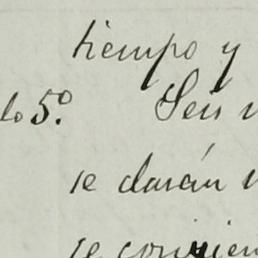 tiempo y
lo 5º. Seis
se darán
se convien